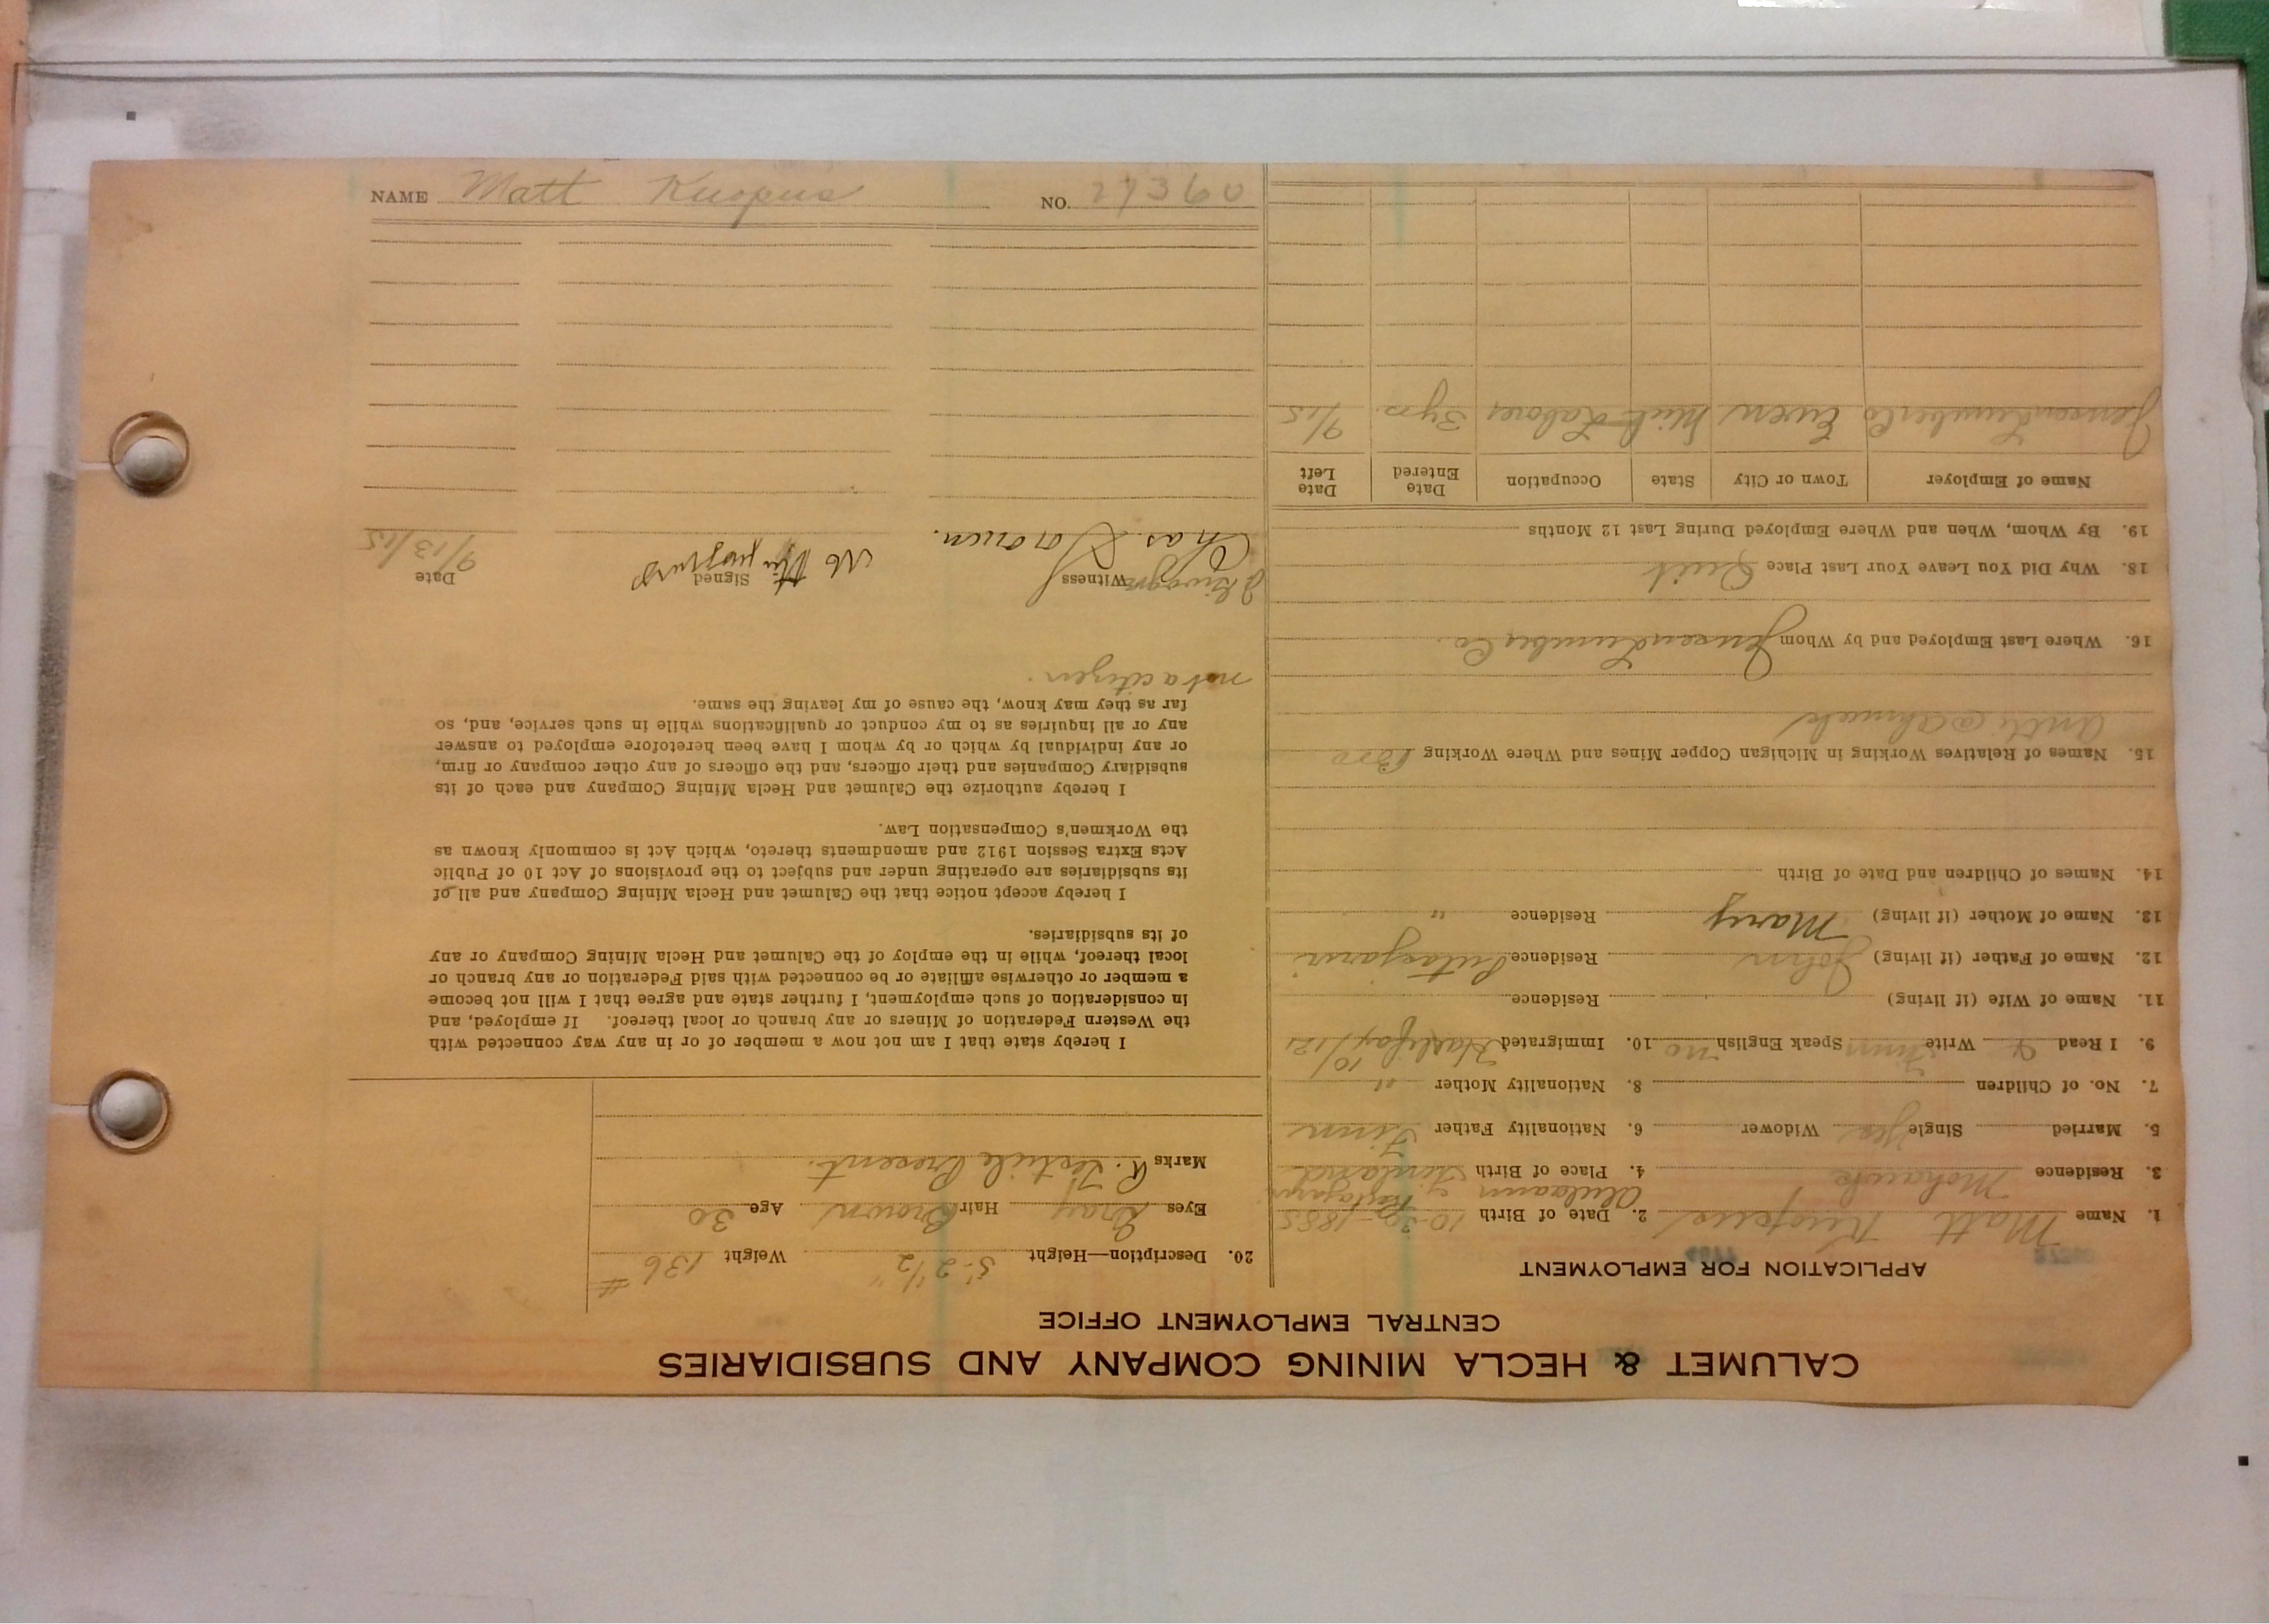 CALUMET & HECLA MINING COMPANY AND SUBSIDIARIES
CENTRAL EMPLOYMENT OFFICE
APPLICATION FOR EMPLOYMENT
1. Name Matt Kuopus 2. Date of Birth 10-30-1885
3. Residence Mohawk 4. Place of Birth Finland
5. Married Single Yes Widower 6. Nationality Father Finn
7. No. of Children 8. Nationality Mother "
9. I Read & Write Finn Speak English no 10. Immigrated Halifax 10/12
11. Name of Wife (if living) Residence
12. Name of Father (if living) John Residence
13. Name of Mother (if living) Mary Residence "
14. Names of Children and Date of Birth
15. Names of Relatives Working in Michigan Copper Mines and Where Working
Antti @ Ahmeek
16. Where Last Employed and by Whom Jensen Lumber Co.
18. Why Did You Leave Your Last Place Quit
19. By Whom, When and Where Employed During Last 12 Months
Name of Employer Town or City State Occupation Date Entered Date Left
Jensen Lumber Co Ewen Mich Laborer 3 yrs 9/15
20. Description—Height 5'-2 1/2" Weight 136 #
Eyes Gray Hair Brown Age 30
Marks R. Testicle Present.
I hereby state that I am not now a member of or in any way connected with
the Western Federation of Miners or any branch or local thereof. If employed, and
in consideration of such employment, I further state and agree that I will not become
a member or otherwise affiliate or be connected with said Federation or any branch or
local thereof, while in the employ of the Calumet and Hecla Mining Company or any
of its subsidiaries.
I hereby accept notice that the Calumet and Hecla Mining Company and all of
its subsidiaries are operating under and subject to the provisions of Act 10 of Public
Acts Extra Session 1912 and amendments thereto, which Act is commonly known as
the Workmen's Compensation Law.
I hereby authorize the Calumet and Hecla Mining Company and each of its
subsidiary Companies and their officers, and the officers of any other company or firm,
or any individual by which or by whom I have been heretofore employed to answer
any or all inquiries as to my conduct or qualifications while in such service, and, so
far as they may know, the cause of my leaving the same.
not a citizen.
Witness Signed Date
Chas. 9/13/15
NAME Matt Kuopus NO. 27360